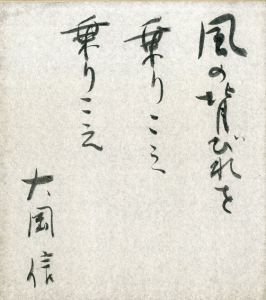 風の背びれを
乗りこえ
乗りこえ
大岡信